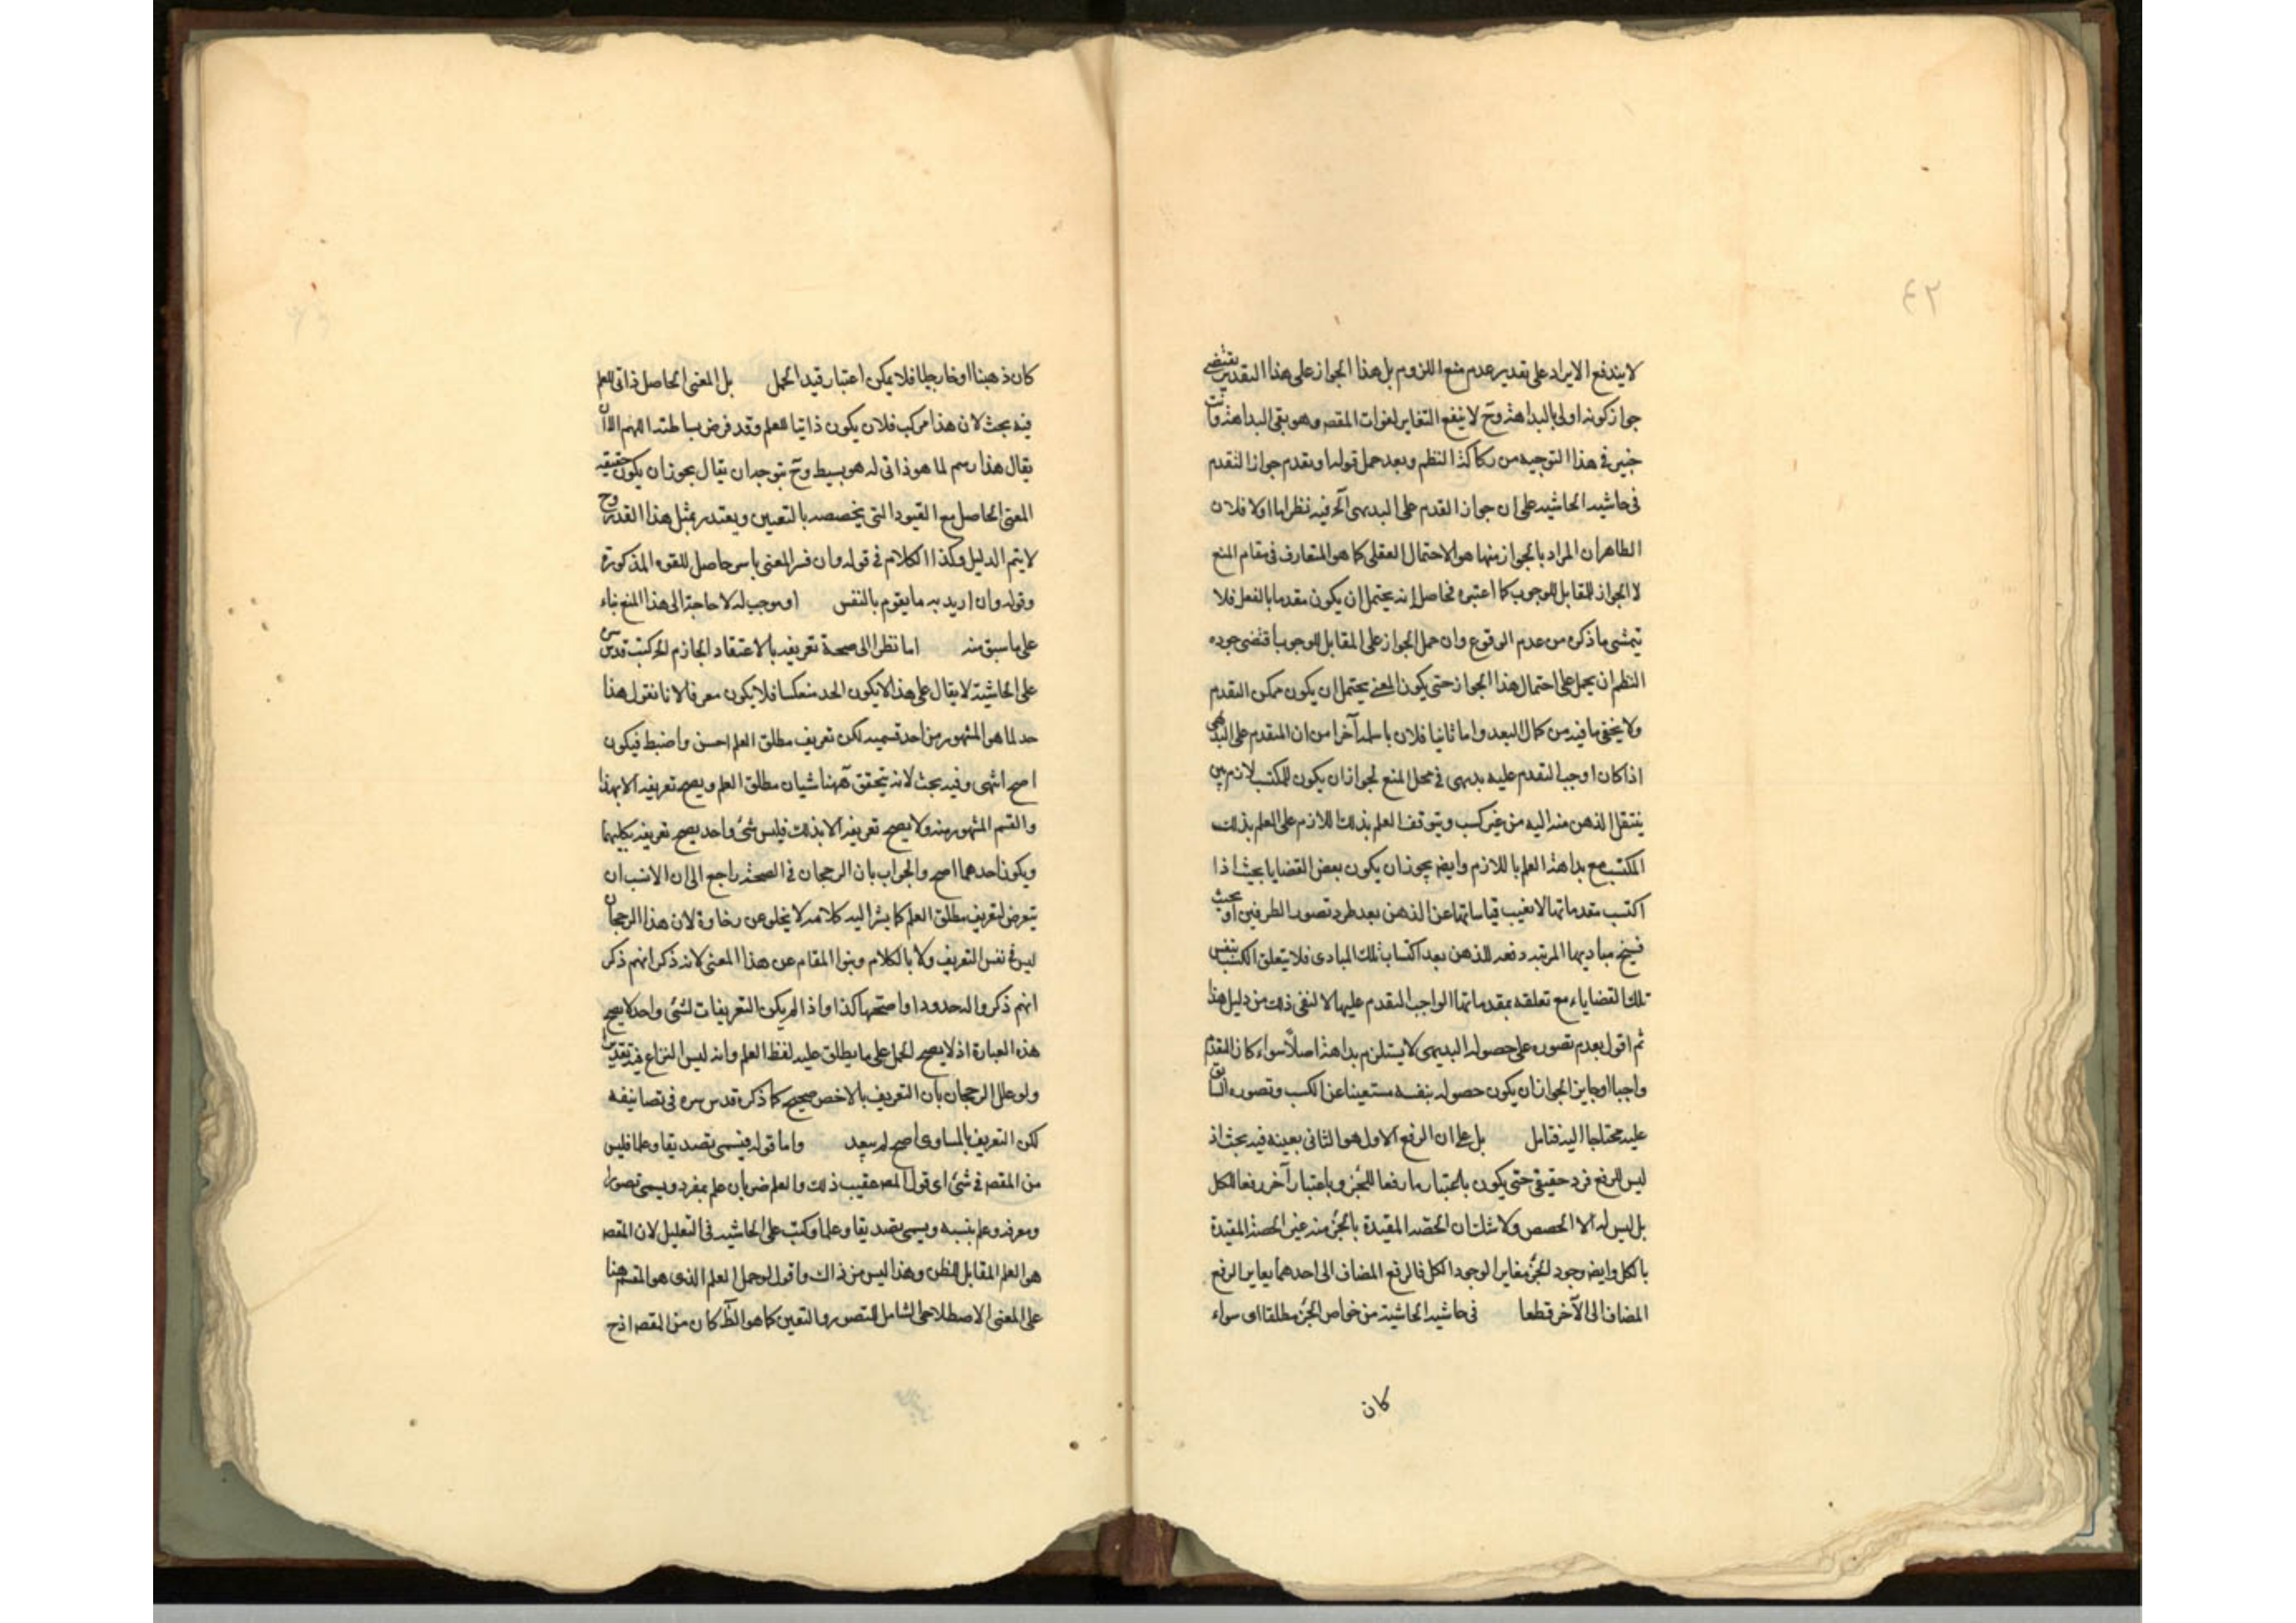 ٤٢
لا يندفع الايراد على تقدير عدم منع اللزوم بل هذا الجواز على هذا التقدير يقتضى
جواز كونه اولى بالبداهة وح لا ينفع التغاير لفوات المقصد وهو بقى البداهة وانت
خبير فى هذا التوجيه من ركاكة النظم وبعد حمل قوله وبقدم جواز التقدم
فى حاشيه الحاشيه على ان جواز القدم على البديهى آلخ فيه نظر اما اولا فلان
الظاهر ان المراد بالجواز منها هو الاحتمال العقلى كما هو المتعارف فى مقام المنع
لا الجواز المقابل للوجوب كما اعتبره فحاصل انه يحتمل ان يكون مقدما بالفعل فلا
تيمشى ما ذكره من عدم الوقوع وان حمل الجواز على المقابل للوجوب اقتضى جوده
النظم ان يحمل على احتمال هذا الجواز حتى يكون المعنى يحتمل ان يكون ممكن التقدم
ولا يخفى ما فيه من كمال البعد واما ثانيا فلان ما سلمه آخرا من ان المتقدم على البديهى
اذا كان اوجب التقدم عليه بديهى فى محل المنع لجواز ان يكون للمكتسب لازم بين
ينتقل الذهن منه اليه من غير كسب ويتوقف العلم بذلك اللازم على العلم بذلك
المكتسب مع بداهة العلم باللازم وايضا يجوز ان يكون بعض القضايا بحيث اذا
اكتسب مقدماتها لا يغيب قياساتها عن الذهن بعد طرد تصور الطرفين او بحيث
مباديها المرتبه دفعه للذهن بعد اكتساب تلك المبادى فلا يتعلق الكسب بنفس
تلك القضايا مع تعلقه بمقدماتها الواجب التقدم عليها لا لنفى ذلك من دليل هذا
ثم اقول بعدم تصوره على حصوله البديهى لا يستلزم بداهة اصلا سواء كان التقدم
واجبا او جايزا لجواز ان يكون حصوله بنفسه مستغنيا عن الكسب وتصوره السابق
عليه محتاجا اليه فتامل بل على ان الرفع الاول هو الثانى بعينه فيه بحث اذ
ليس للرفع فرد حقيقى حتى يكون باعتبار ما رفعا للجزء وباعتبار آخر رفعا للكل
بل ليس له الا الحصص ولا شك ان الحصة المقيدة بالجزء منه غير الحصة المقيدة
بالكل وايضا وجود الجزء مغاير لوجود الكل فالرفع المضاف الى احدهما يغاير الرفع
المضاف الى الآخر قطعا فى حاشيه الحاشية من خواص الجزء مطلقا اى سواء
كان
كان ذهنيا او خارجيا فلا يمكن اعتبار قيد الحمل بل المعنى الحاصل ذاتى للعلم
فيه بحث لان هذا مركب فلان يكون ذاتيا للعلم وقد فرض بساطته اللهم الا ان
يقال هذا رسم لما هو ذاتى له هو بسيط وح يتوجه ان يقال يجوز ان يكون حقيقه
المعنى الحاصل مع القيود التى يخصصه بالتعيين ويعتذر بمثل هذا القدر وح
لا يتم الدليل وكذا الكلام فى قوله وان فسر المعنى بامر حاصل للقوه المذكورة
وقوله وان اريد به ما يقوم بالنفس او موجب له لا حاجة الى هذا المنع بناء
على ما سبق منه اما نظرا الى صحة تعريفه بالاعتقاد الجازم الخ كتب قدس سره
على الحاشية لا يقال على هذا لا يكون الحد منعكسا فلا يكون معرفا لانا نقول هذا
حد لما هو المشهور من احد قسميه لكن تعريف مطلق العلم احسن واضبط فيكون
اصح انتهى وفيه بحث لانه يتحقق ههنا شيان مطلق العلم ويصح تعريفه الا بهذا
والقسم المشهور منه ولا يصح تعريفه الا بذلك فليس شئ واحد يصح تعريفه بكليهما
ويكون احدهما اصح والجواب بان الرجحان فى الصحة راجع الى ان الانسب ان
يتعرض لتعريف مطلق العلم كما يشر اليه كلامه لا يخلو عن رخاوة لان هذا الرجحان
ليس فى نفس التعريف ولا بالكلام وبنوا المقام عن هذا المعنى لانه ذكر انهم ذكر
انهم ذكروا له حدودا واصحها كذا واذا لم يكن التعريفات لشئ واحد لا يصح
هذه العبارة اذ لا يصح الحمل على ما يطلق عليه لفظ العلم وانه ليس النزاع فيه
ولو علل الرجحان بان التعريف بالاخص صحيح كما ذكره قدس سره فى تصانيفه
لكن التعريف بالمساوى اصح لم يبعد واما قوله فيسمى تصديقا وعلما فليس
من المقصد فى شئ اى قول المصه عقيب ذلك والعلم ضربان علم بمفرد ويسمى تصورا
ومعرفه وعلم بنسبه ويسمى تصديقا وعلما وكتب على الحاشيه فى التعليل لان المقصد
هو العلم المقابل للظن وهذا ليس من ذاك واقول لو حمل العلم الذى هو المقسم هنا
على المعنى الاصطلاحى الشامل للتصور والتعين كما هو الظ كان من المقصد اذ ح